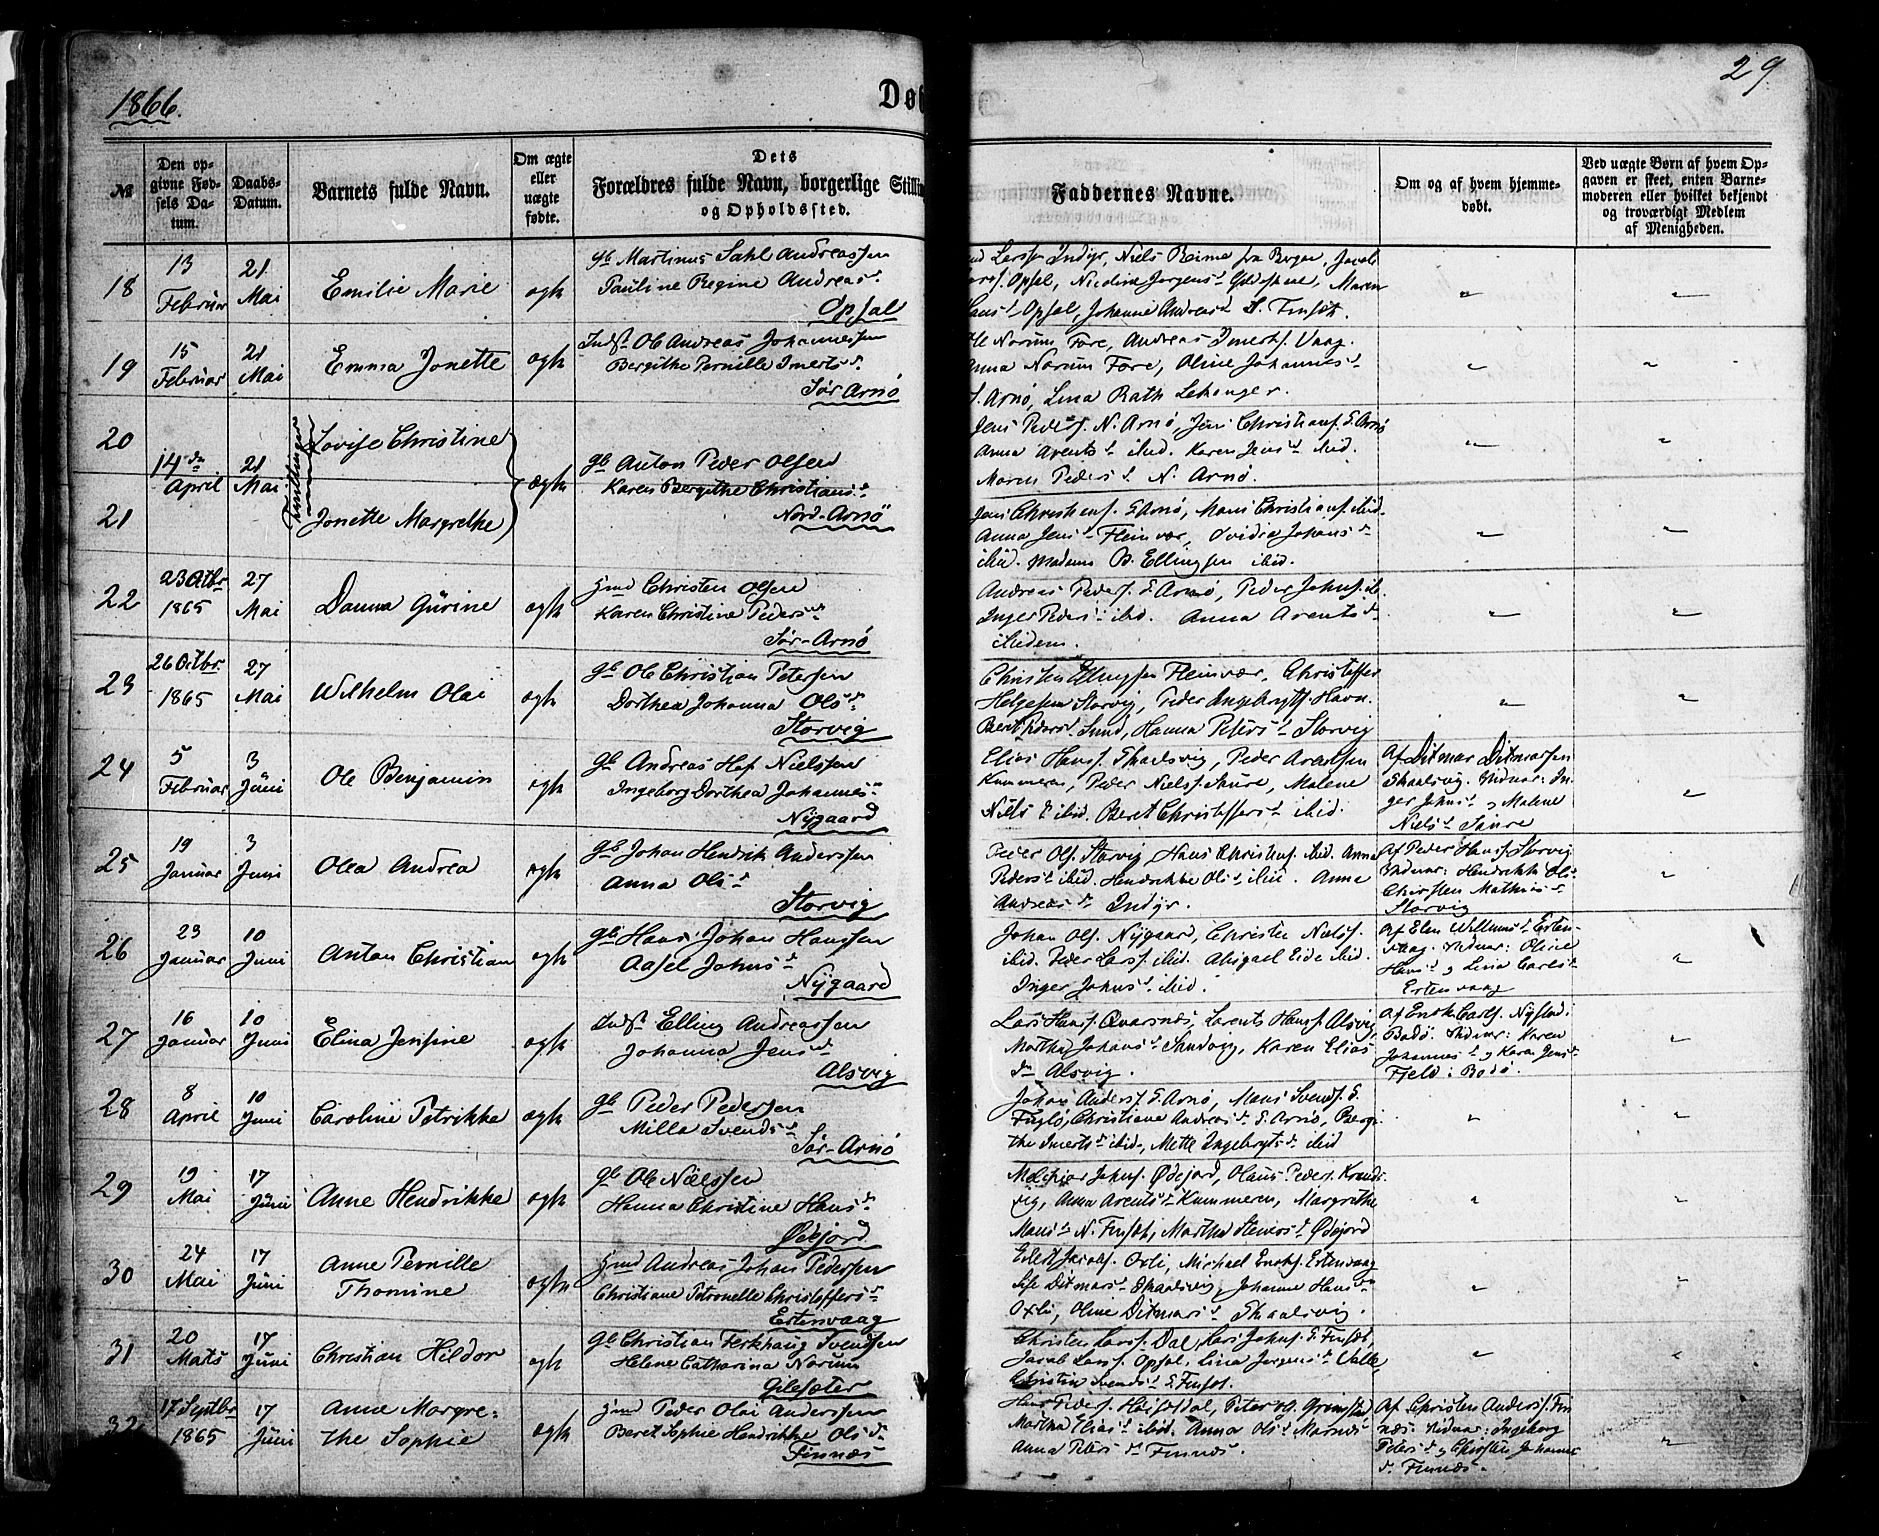 1866.
Døb
29
№
Den opgivne Fødsels Datum.
Daabs-Datum.
Barnets fulde Navn.
Om ægte eller uægte fødte.
Dets Forældres fulde Navn, borgerlige Stilli og Opholdssted.
Faddernes Navne.
Om og af hvem hjemmedøbt.
Ved uægte Børn af hvem Opgaven er skeet, enten Barnemoderen eller hvilket bekjendt og troværdigt Medlem af Menigheden.
18 13 Februar 21 Mai Emilie Marie ægte
Gb Martinus Dahl Andreassen
Pauline Regine Andreas.d
Opsal
Larss. Indyr, Niels Reime fra Bergen, Jacob
Larss. Opsal, Nicoline Jørgens.d Maren
Hans.d Opsal, Johanne Andreas.d S. Finset.
"
"
19 15 Februar 21 Mai Emma Jonette ægte
Inds. Ole Andreas Johannessen
Bergithe Pernille Imerts.d
Sør Arnø
Ole Norum Fore, Andreas Imerts. Vaag.
Anna Norum Fore, Oline Johannes.d
S. Arnø, Lina Rath Lekanger.
"
"
20 14de April 21 Mai Tvillinger Lovise Christine ægte
21 Jonette Margrethe
Gb Anton Peder Olsen
Karen Bergithe Christians.d
Nord-Arnø
Jens Peders. N. Arnø, Jens Christians. S. Arnø
Anna Arents.d ibid. Karen Jens.d ibid.
Maren Peders.d N. Arnø.
"
"
Jens Christians. S Arnø, Mons Christians. ibid.
Anna Jens.d Fleinvær, Ovidia Johans.d
ibid. Madame B. Ellingsen ibid.
"
"
22 23 Octbr 1865 27 Mai Danna Gurine ægte
Gmd Christen Olsen
Karen Christine Peders.d
Sør-Arnø
Andreas Peders. S Arnø, Peder Johns. ib.
Inger Peders.d ibid. Anna Arents.d
ibidem.
"
"
23 26 Octbr. 1865 27 Mai Wilhelm Olai ægte
Gb Ole Christian Petersen
Dorthea Johanna Ols.d
Storvig
Christen Ellingsen Fleinvær, Christoffer
Helgesen Storvig, Peder Ingebrygts. Havn.
Berit Peders.d Sund, Hanna Peters.d Storvig
"
"
24 5 Februar 3 Juni Ole Benjamin ægte
Gb Andreas Hof Nielssen
Ingeborg Dorthea Johannes.d
Nygaard
Elias Hans. Skaalsvig, Peder Arentsen
Kummeren, Peder Niels. Saure, Malene
Niels.d ibid. Beret Christoffers.d ibid.
Af Ditmar Ditmarsen
Skaalsvig. Vidnar: In-
ger Johns.d og Malene
Niels.d Saure
"
25 19 Januar 3 Juni Olea Andrea ægte
Gb Johan Hendrik Anderssen
Anna Ols.d
Storvig
Peder Ols. Storvig, Hans Christens. ibid. Anna
Peders.d ibid. Hendrikke Ols.d ibid. Anna
Andreas.d Indyr.
Af Peder Hans. Storvig
Vidnar: Hendrikke Ols.d
Christen Mathias.d
Storvig
"
26 23 Januar 10 Juni Anton Christian ægte
Gb Hans Johan Hansen
Aasel Johns.d
Nygaard
Johan Ols. Nygaard, Christen Niels.
ibid. Peder Lars. ibid. Abigael Eide ibid.
Inger Johns.d ibid.
Af Elen Willums.d Erten-
vaag. Vidnar: Oline
Hans.d og Lina Carls.d
Ertenvaag
"
27 16 Januar 10 Juni Elina Jensine ægte
Inds. Elling Andreassen
Johanna Jens.d
Alsvig
Lars Hans. Qvarsnes, Larents Hans. Alsvig,
Martha Johans.d Sandvig, Karen Elias
d. Alsvig.
Af Enok Carls. Nyland i
Bodø. Vidnar: Karen
Johannes.d og Karen Jens.d
Fjeld i Bodø.
"
28 8 April 10 Juni Caroline Petrikke ægte
Gb Peder Pedersen
Milla Svends.d
Sør-Arnø
Johan Anders. S Arnø, Mons Svends. S.
Fuglø, Christiane Andreas.d S. Arnø, Bergi-
the Imerts.d ibid., Mette Ingebrygts.d ibid
"
"
29 19 Mai 17 Juni Anne Hendrikke ægte
Gb Ole Nielssen
Hanna Christine Hans.d
Ødejord
Melchior Johns. Ødejord, Olaus Peders. Krands-
vig, Anna Arents.d Kummeren, Margrethe
Mons.d N. Finset, Martha Steners.d Ødejord
"
"
30 24 Mai 17 Juni Anne Pernille Thomine ægte
Gmd Andreas Johan Pedersen
Christiane Petronelle Christoffers.d
Ertenvaag
Eilert Jacobs. Oxli, Michael Enoks. Ertenvaag
Ditmars.d Skaalsvig, Johanne Hans.d
Oxli, Oline Ditmars.d Skaalsvig.
"
"
31 20 Marts 17 Juni Christian Hildor ægte
Gb Christian Ferkhaug Svendsen
Helene Catharina Norum
Gilesæter
Christen Larss. Dal, Lars Johns. S. Finset,
Jacob Larss. Opsal, Lina Jørgens.d Valle,
Christin Svends.d S Finset.
"
"
32 17 Septbr 1865 17 Juni Anne Margre-
the Sophie ægte
Gmd Peder Olai Anderssen
Beret Sophie Hendrikke Ols.d
Finnæs
Hans Peders. Heigdedal, Peter Ols. Grimstad,
Martha Elias.d ibid. Anna Ols.d Marnæs
Anna Peters.d Finnæs.
Af Christen Anders. Fin-
næs. Vidnar: Ingeborg
Peders.d og Christen Johannes
d. Finnæs.
"